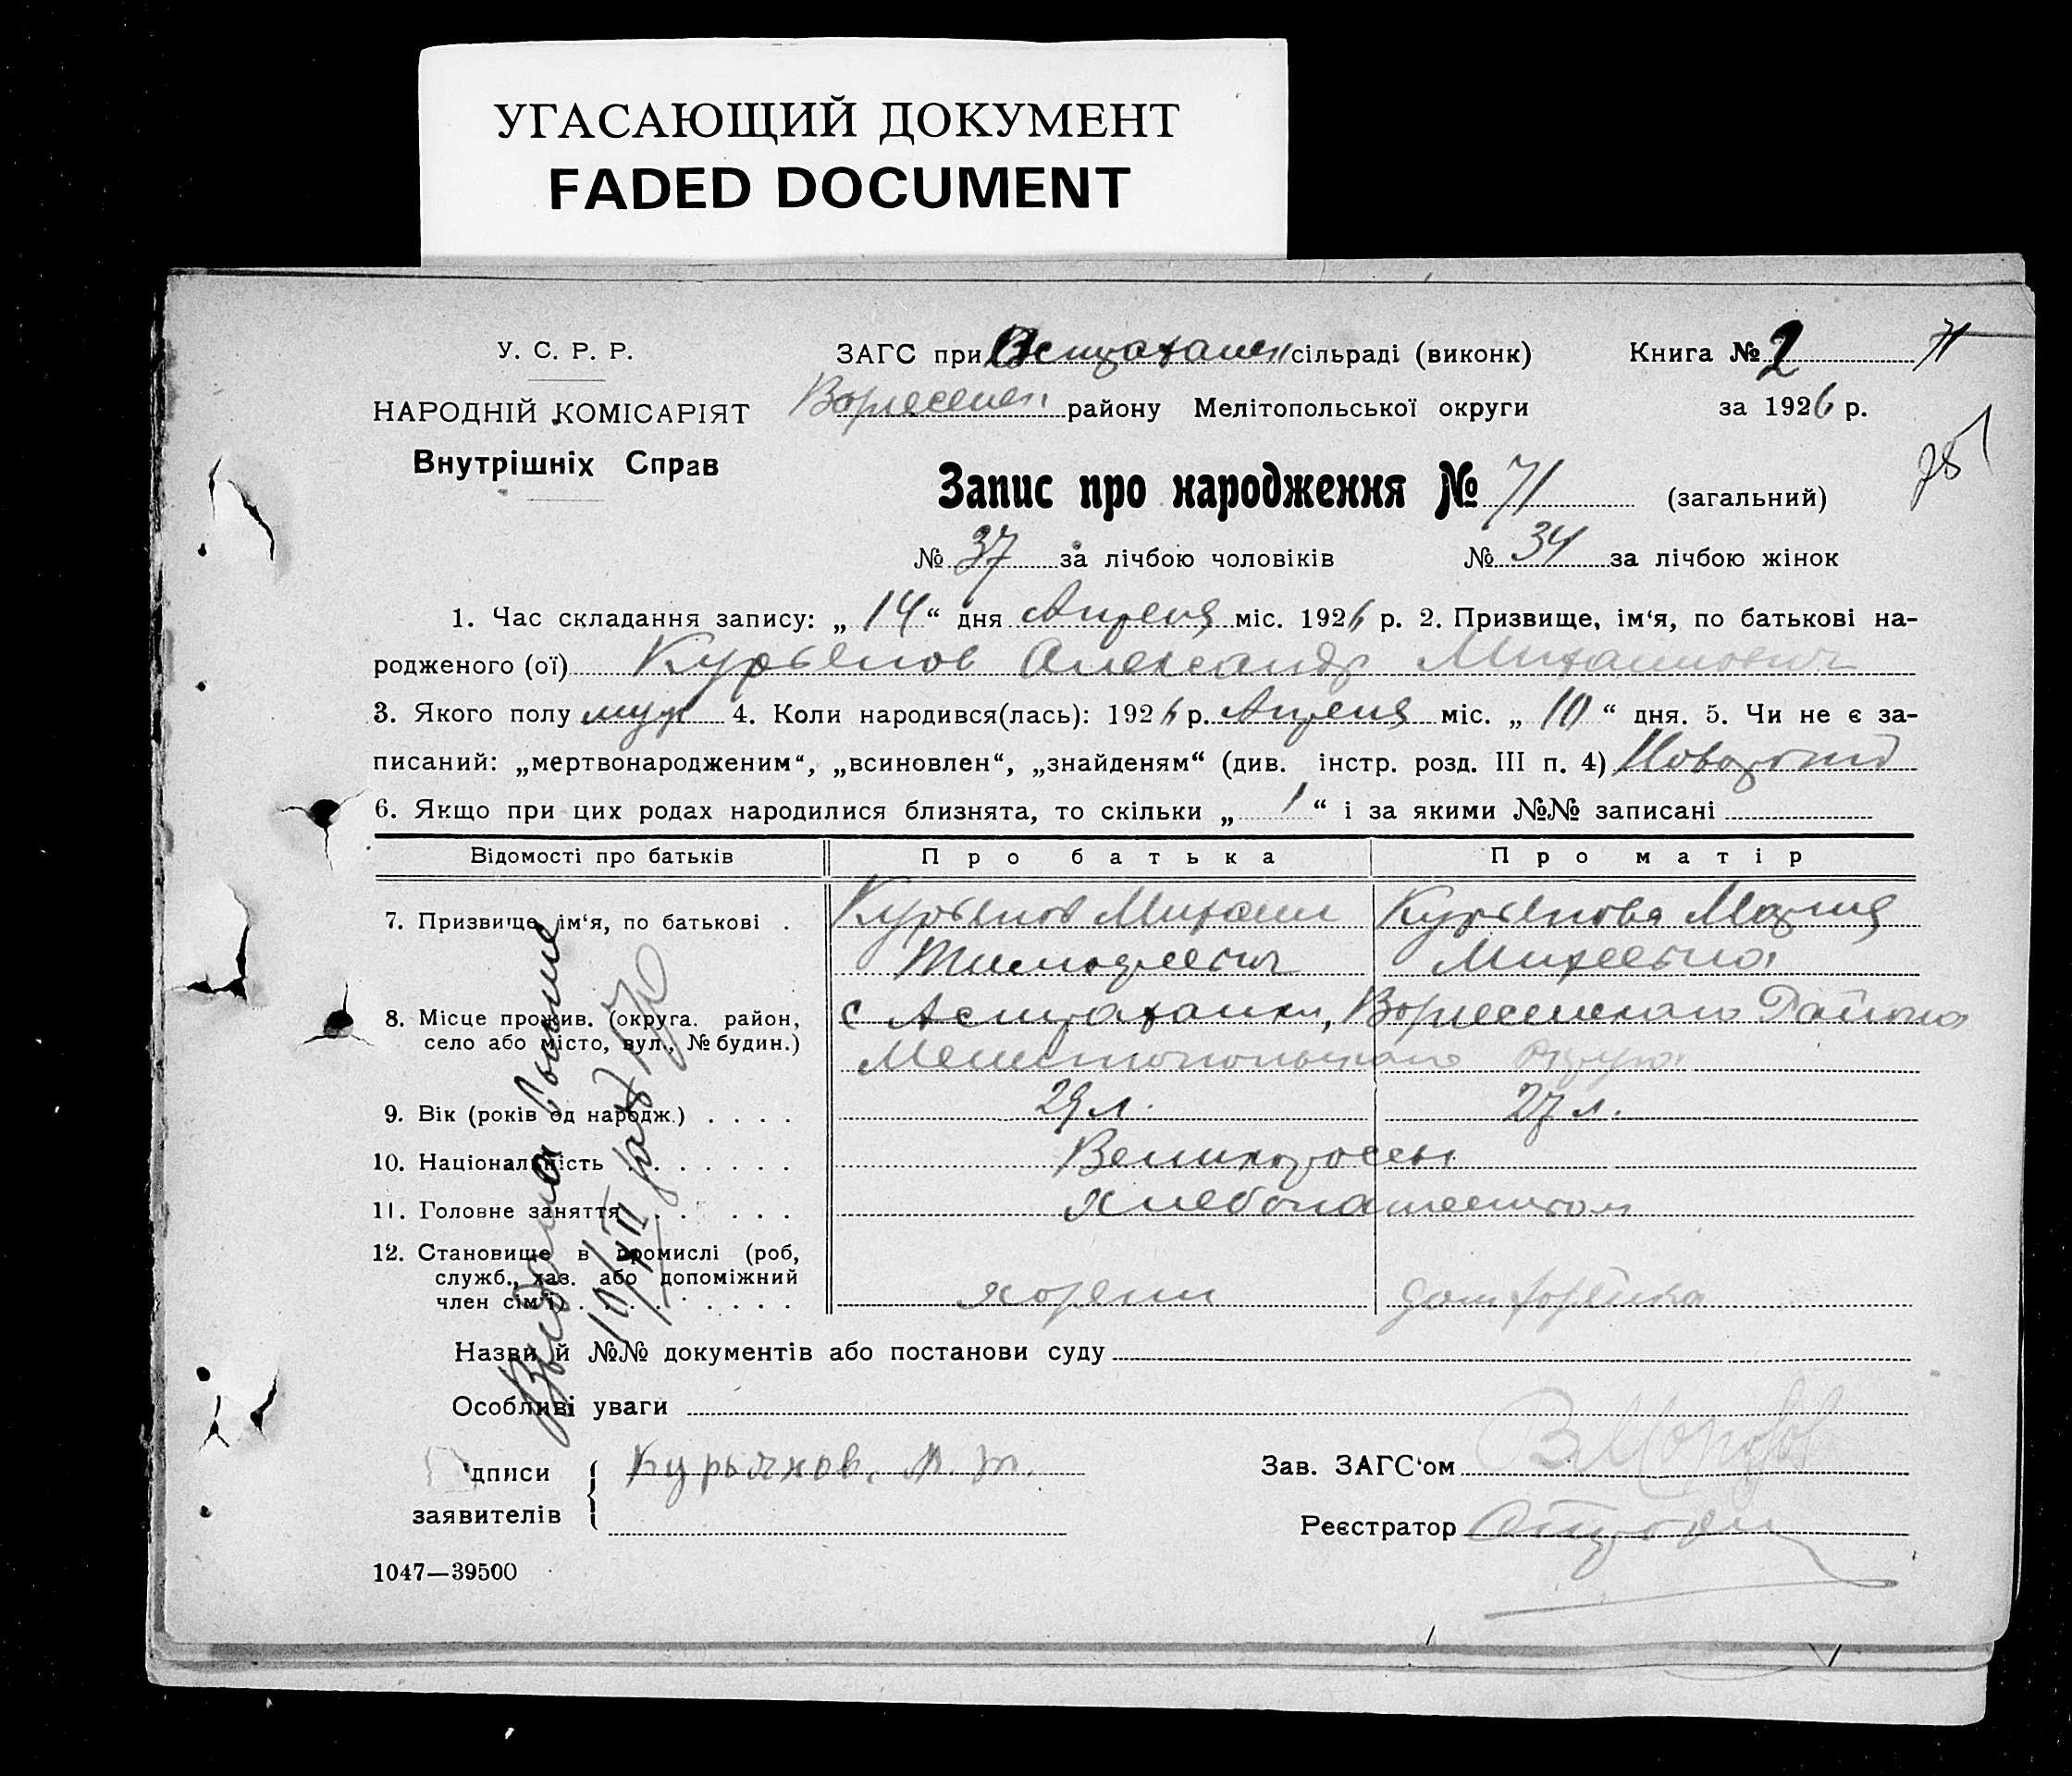 УГАСАЮЩИЙ ДОКУМЕНТ
FADED DOCUMENT
У. С. Р. Р.
НАРОДНІЙ КОМІСАРІЯТ
Внутрішніх Справ
ЗАГС при Астраханск сільраді (виконк)
района Мелітопольської округи
Книга № 2 71
за 1926 р.
Запис про народження № 71 (загальний)
№ 37 за лічбою чоловіків № 34 за лічбою жінок
1. Час складання запису: „ 14 “ дня Апреля міс. 1926 р. 2. Призвище, ім‘я, по батькові на-
родженого (ої) Курьянов Александр Михайлович
3. Якого полу муж 4. Коли народився(лась): 1926 р. Апреля міс. „ 10 “ дня. 5. Чи не є за-
писаний: „мертвонародженим“, „всиновлен“, „знайденям“ (див. інстр. розд. III п. 4)
6. Якщо при цих родах народилися близнята, то скільки „ 1 “ і за якими №№ записані
Відомості про батьків Про батька Про матір
7. Призвище, ім‘я, по батькові . Курьянов Михаил Курьянова Мария
Тимофеевич Михеевна
8. Місце прожив. (округа. район, с Астраханки, Района
село або місто, вул., № будин.) Мелитопольского округа
9. Вік (років од народж.) . . . . 29 л. 27 л.
10. Національність . . . . . . Великороссы
11. Головне заняття . . . . . хлебопашеством
12. Становище в промислі (роб,
служб., хаз. або допоміжний
член сім‘ї) . . . . . . . . . хозяин домхозяйка
Назви й №№ документів або постанови суду
Особливі уваги
Підписи Курьянов. М. Т.
заявителів
Зав. ЗАГС‘ом В Морозов
Реєстратор
1047—39500